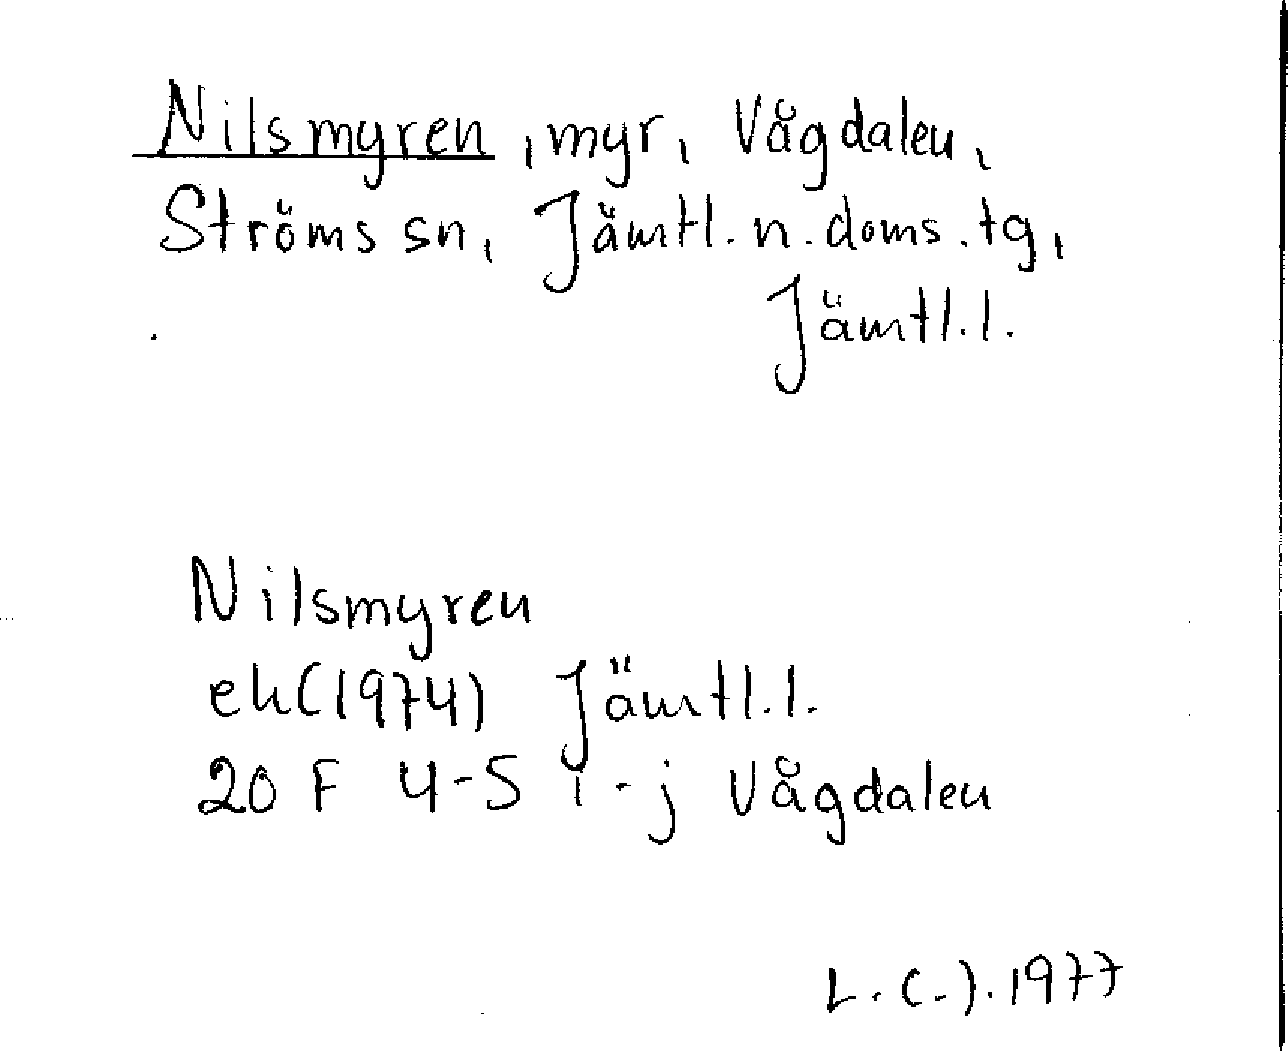 Nilsmyren, myr, Vågdalen,
Ströms sn, Jämtl. n. doms. tg,
Jämtl. l.
Nilsmyren
ek (1974) Jämtl. l.
20 F 4-5 i-j Vågdalen
L. C-). 1977